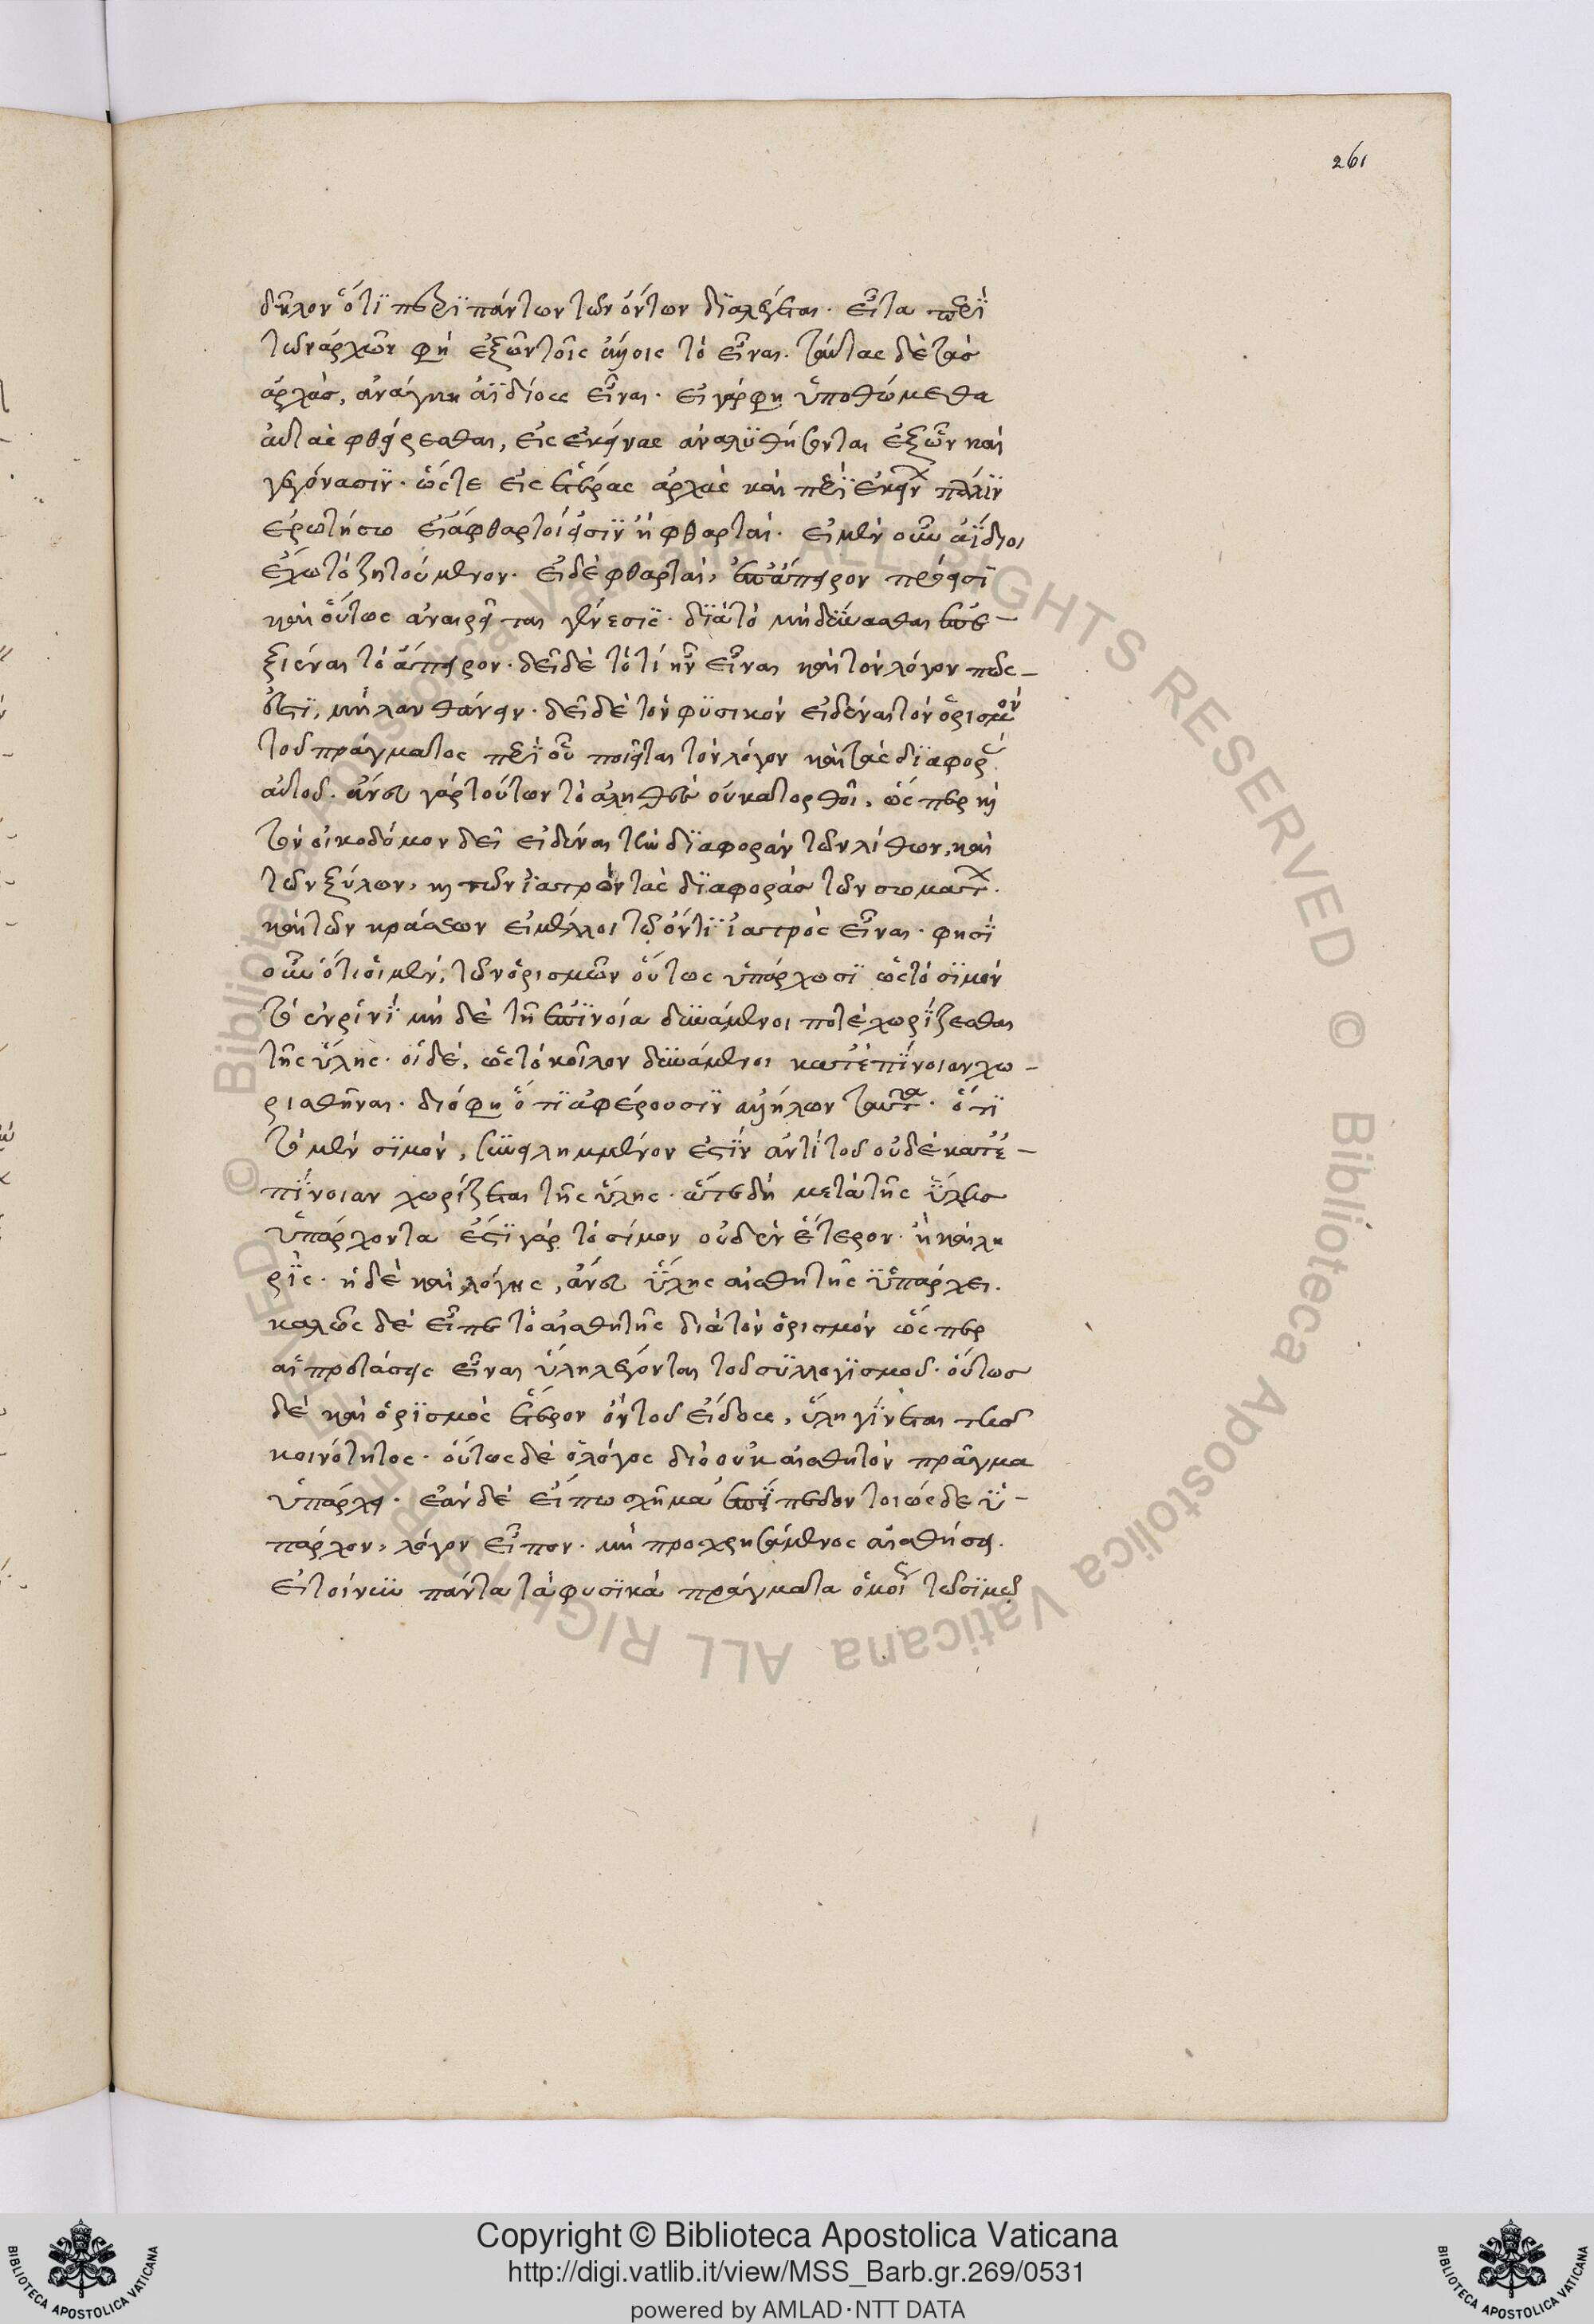 261
δῆλον ὅτι περὶ πάντων τῶν ὄντων διαλέγεται. εἶτα περὶ
τῶν ἀρχῶν φη ἐξ ὧν τοῖς ἄλλοις τὸ εἶναι. ταύτας δὲ τὰς
ἀρχὰς, ἀνάγκη ἀϊδίους εἶναι. εἰ γάρ φη ὑποθώμεθα
αὐτὰς φθείρεσθαι, εἰς ἐκείνας ἀναλυθήσονται ἐξ ὧν καὶ
γεγόνασιν. ὥστε εἰς ἑτέρας ἀρχὰς καὶ περὶ ἐκείνων πάλιν
ἐρωτήσω εἰ ἄφθαρτοί εἰσιν ἢ φθαρταί. εἰ μὲν οὖν ἀΐδιοι
ἔχω τὸ ζητούμενον. εἰ δὲ φθαρταί, ἐπ' ἄπειρον πρόεισι
καὶ οὕτως ἀναιρεῖται γένεσις. διὰ τὸ μὴ δύνασθαι ἐπε-
ξιέναι τὸ ἄπειρον. δεῖ δὲ τὸ τί ἦν εἶναι καὶ τὸν λόγον πῶς
ἐστι, μὴ λανθάνειν. δεῖ δὲ τὸν φυσικὸν εἰδέναι τὸν ὁρισμὸν
τοῦ πράγματος περὶ οὗ ποιεῖται τὸν λόγον καὶ τὰς διαφορὰς
αὐτοῦ. ἄνευ γὰρ τούτων τὸ ἀληθὲς οὐ κατορθοῖ, ὥσπερ καὶ
τὸν οἰκοδόμον δεῖ εἰδέναι τὴν διαφορὰν τῶν λίθων, καὶ
τῶν ξύλων, καὶ τῶν ἰατρὸν τὰς διαφορὰς τῶν σωμάτων.
καὶ τῶν κράσεων εἰ μέλλοι τῷ ὄντι ἰατρὸς εἶναι. φησὶ
οὖν ὅτι οἱ μὲν, τῶν ὁρισμῶν οὕτως ὑπάρχωσι ὡς τὸ σιμὸν
τὸ ἐν ῥινὶ μὴ δὲ τῇ ἐπινοία δυνάμενοι ποτὲ χωρίζεσθαι
τῆς ὕλης. οἱ δέ, ὡς τὸ κοῖλον δυνάμενοι κατ' ἐπίνοιαν χω-
ρισθῆναι. διό φη ὅτι διαφέρουσιν ἀλλήλων ταῦτα. ὅτι
τὸ μὲν σιμὸν, συνειλημμένον ἐστὶν ἀντὶ τοῦ οὐδὲ κατ' ἐ-
πίνοιαν χωρίζεται τῆς ὕλης. ἅτε δὴ μετὰ τῆς ὕλης
ὑπάρχοντα ἔστι γὰρ τὸ σίμον οὐδὲν ἕτερον. ἢ κοίλη
ῥίς. ἡ δὲ κοιλότης, ἄνευ ὕλης αἰσθητῆς ὑπάρχει.
καλῶς δὲ εἶπε τὸ αἰσθητῆς διὰ τὸν ὁρισμόν ὥσπερ
αἱ προτάσεις εἶναι ὕλη λέγονται τοῦ συλλογισμοῦ. οὕτως
δὲ καὶ ὁρισμὸς ἕτερον ὂν τοῦ εἴδους, ὕλη γίνεται τῆς
κοινότητος. οὕτως δὲ ὁ λόγος διὸ οὐκ αἰσθητὸν πρᾶγμα
ὑπάρχει. ἐὰν δὲ εἴπω σχῆμα ἐπίπεδον τοιῶςδε ὑ-
πάρχον, λόγον εἶπον. μὴ προσχρησάμενος αἰσθήσει.
εἰ τοίνυν πάντα τὰ φυσικὰ πράγματα ὁμοίως τῷ σιμῷ
Copyright © Biblioteca Apostolica Vaticana
http://digi.vatlib.it/view/MSS_Barb.gr.269/0531
powered by AMLAD·NTT DATA